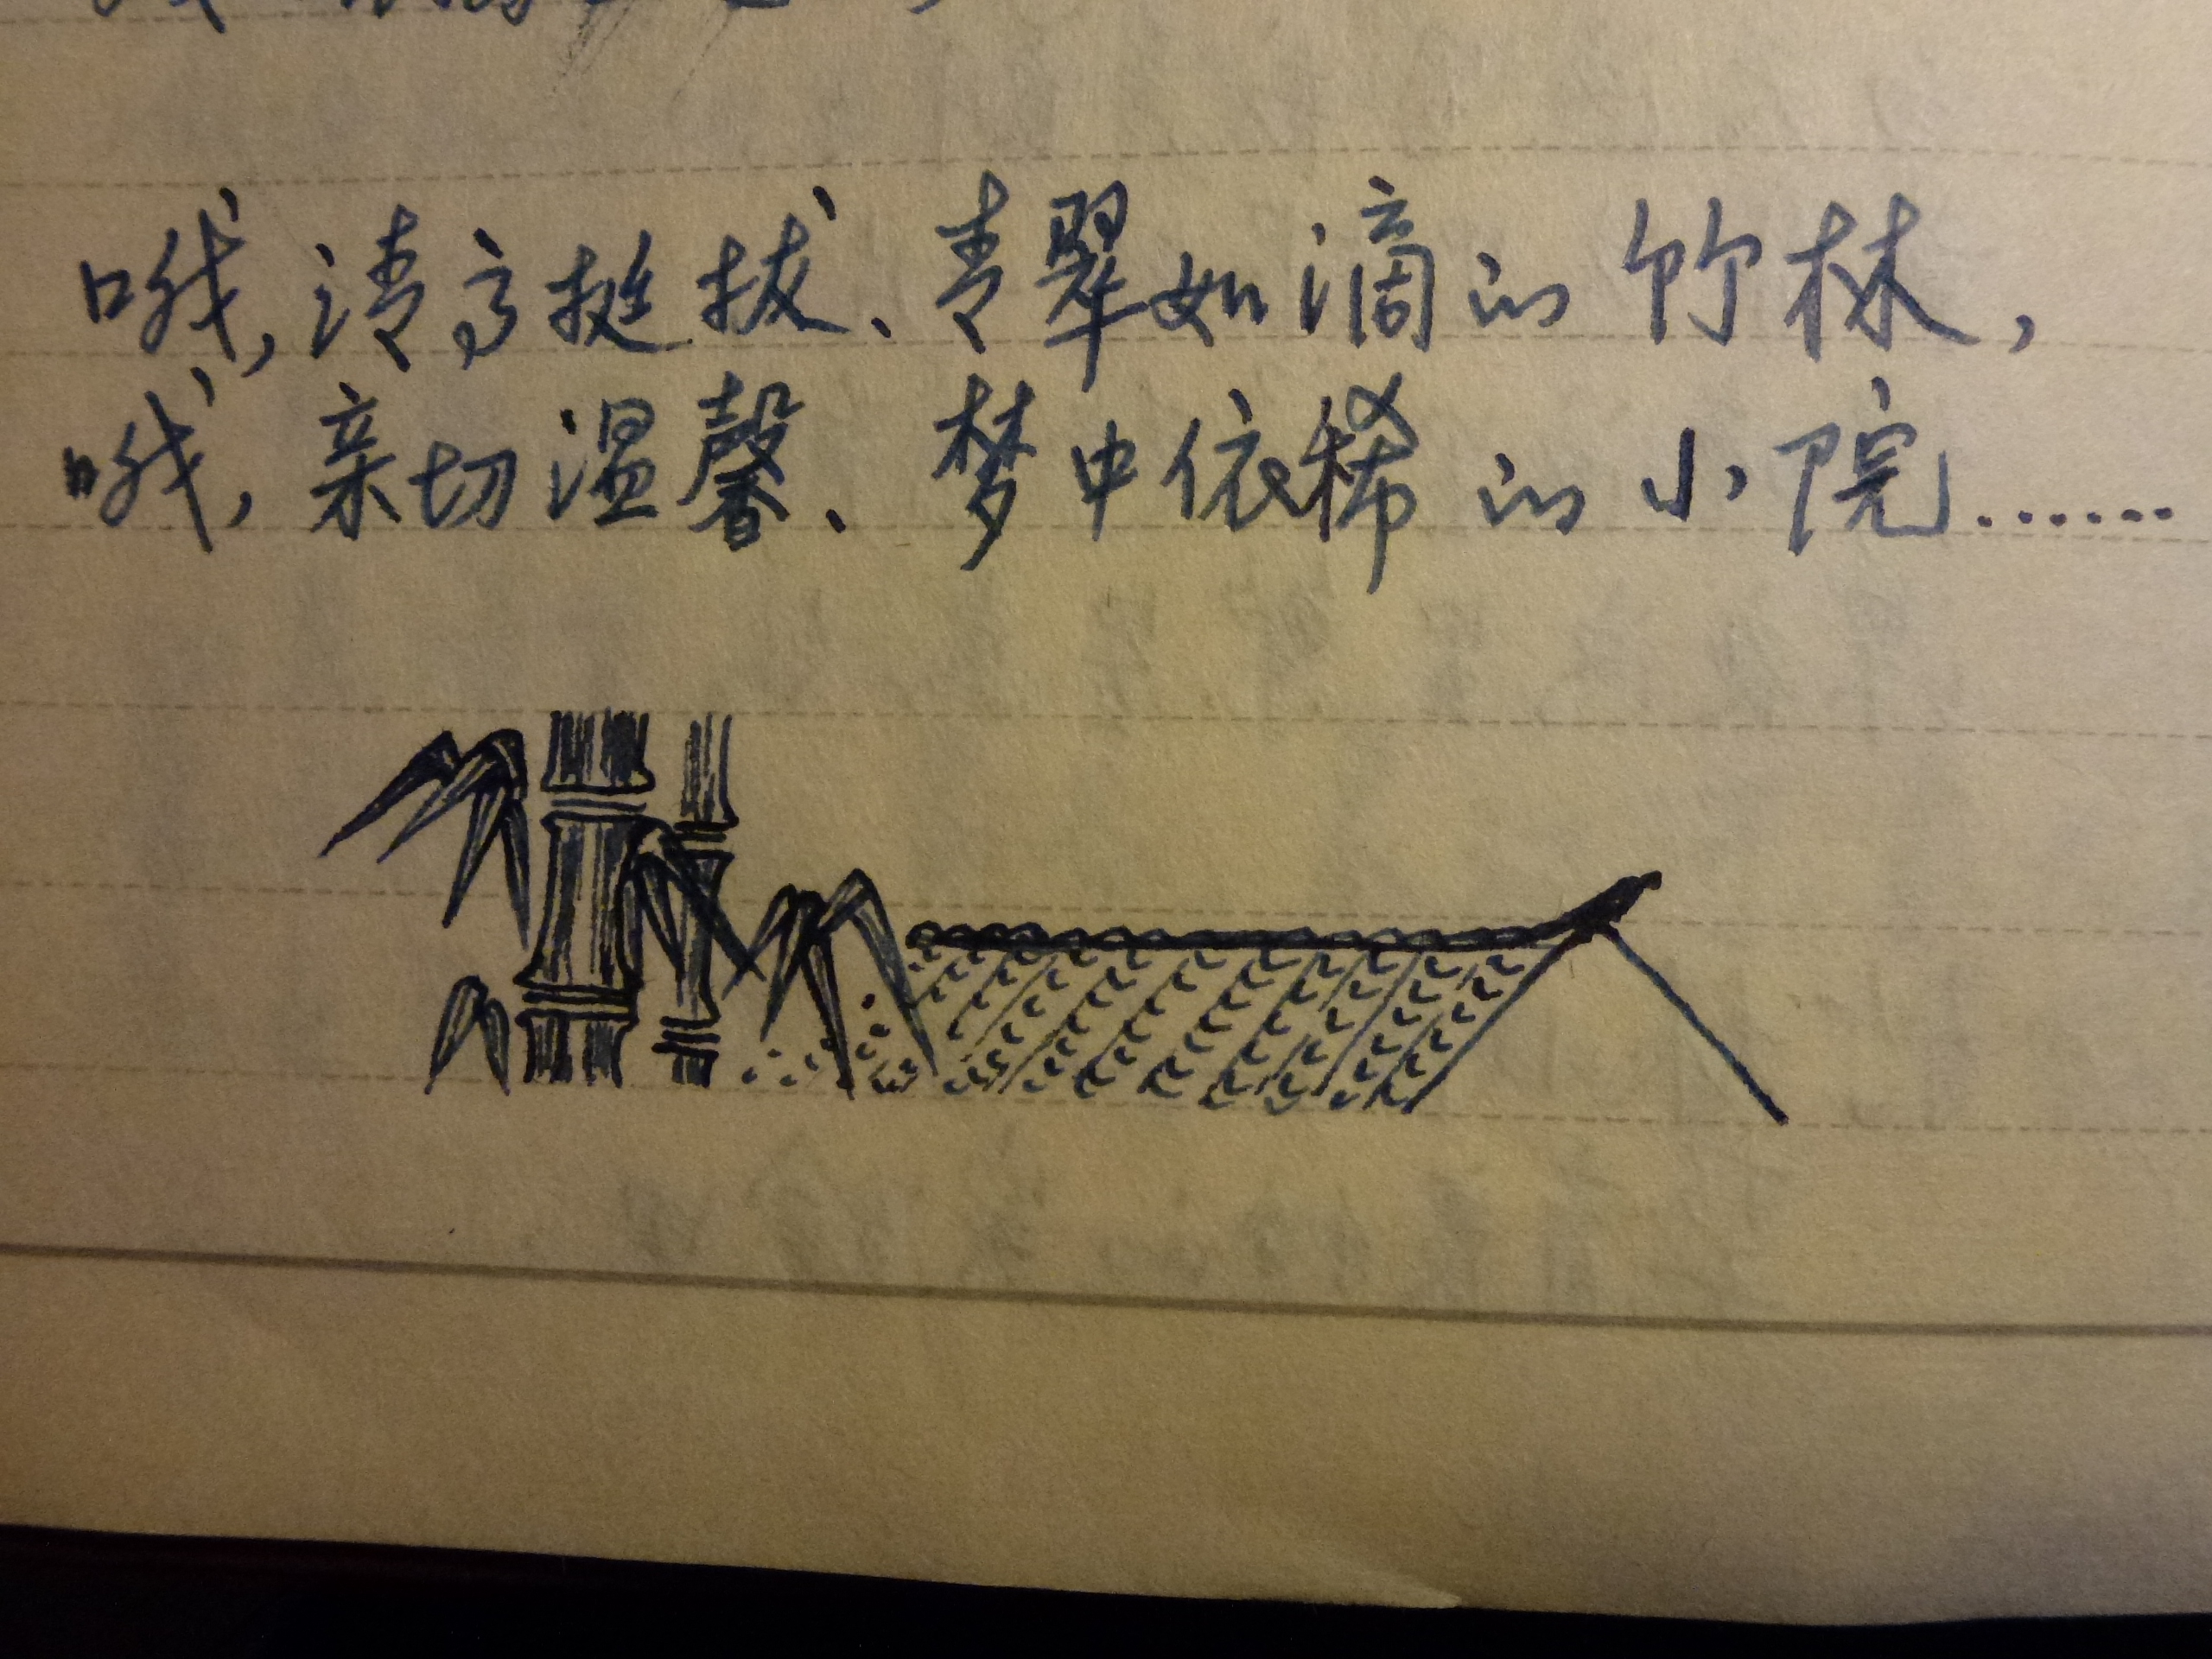 哦,清高挺拔、青翠如滴的竹林,
哦,亲切温馨、梦中依稀的小院.......